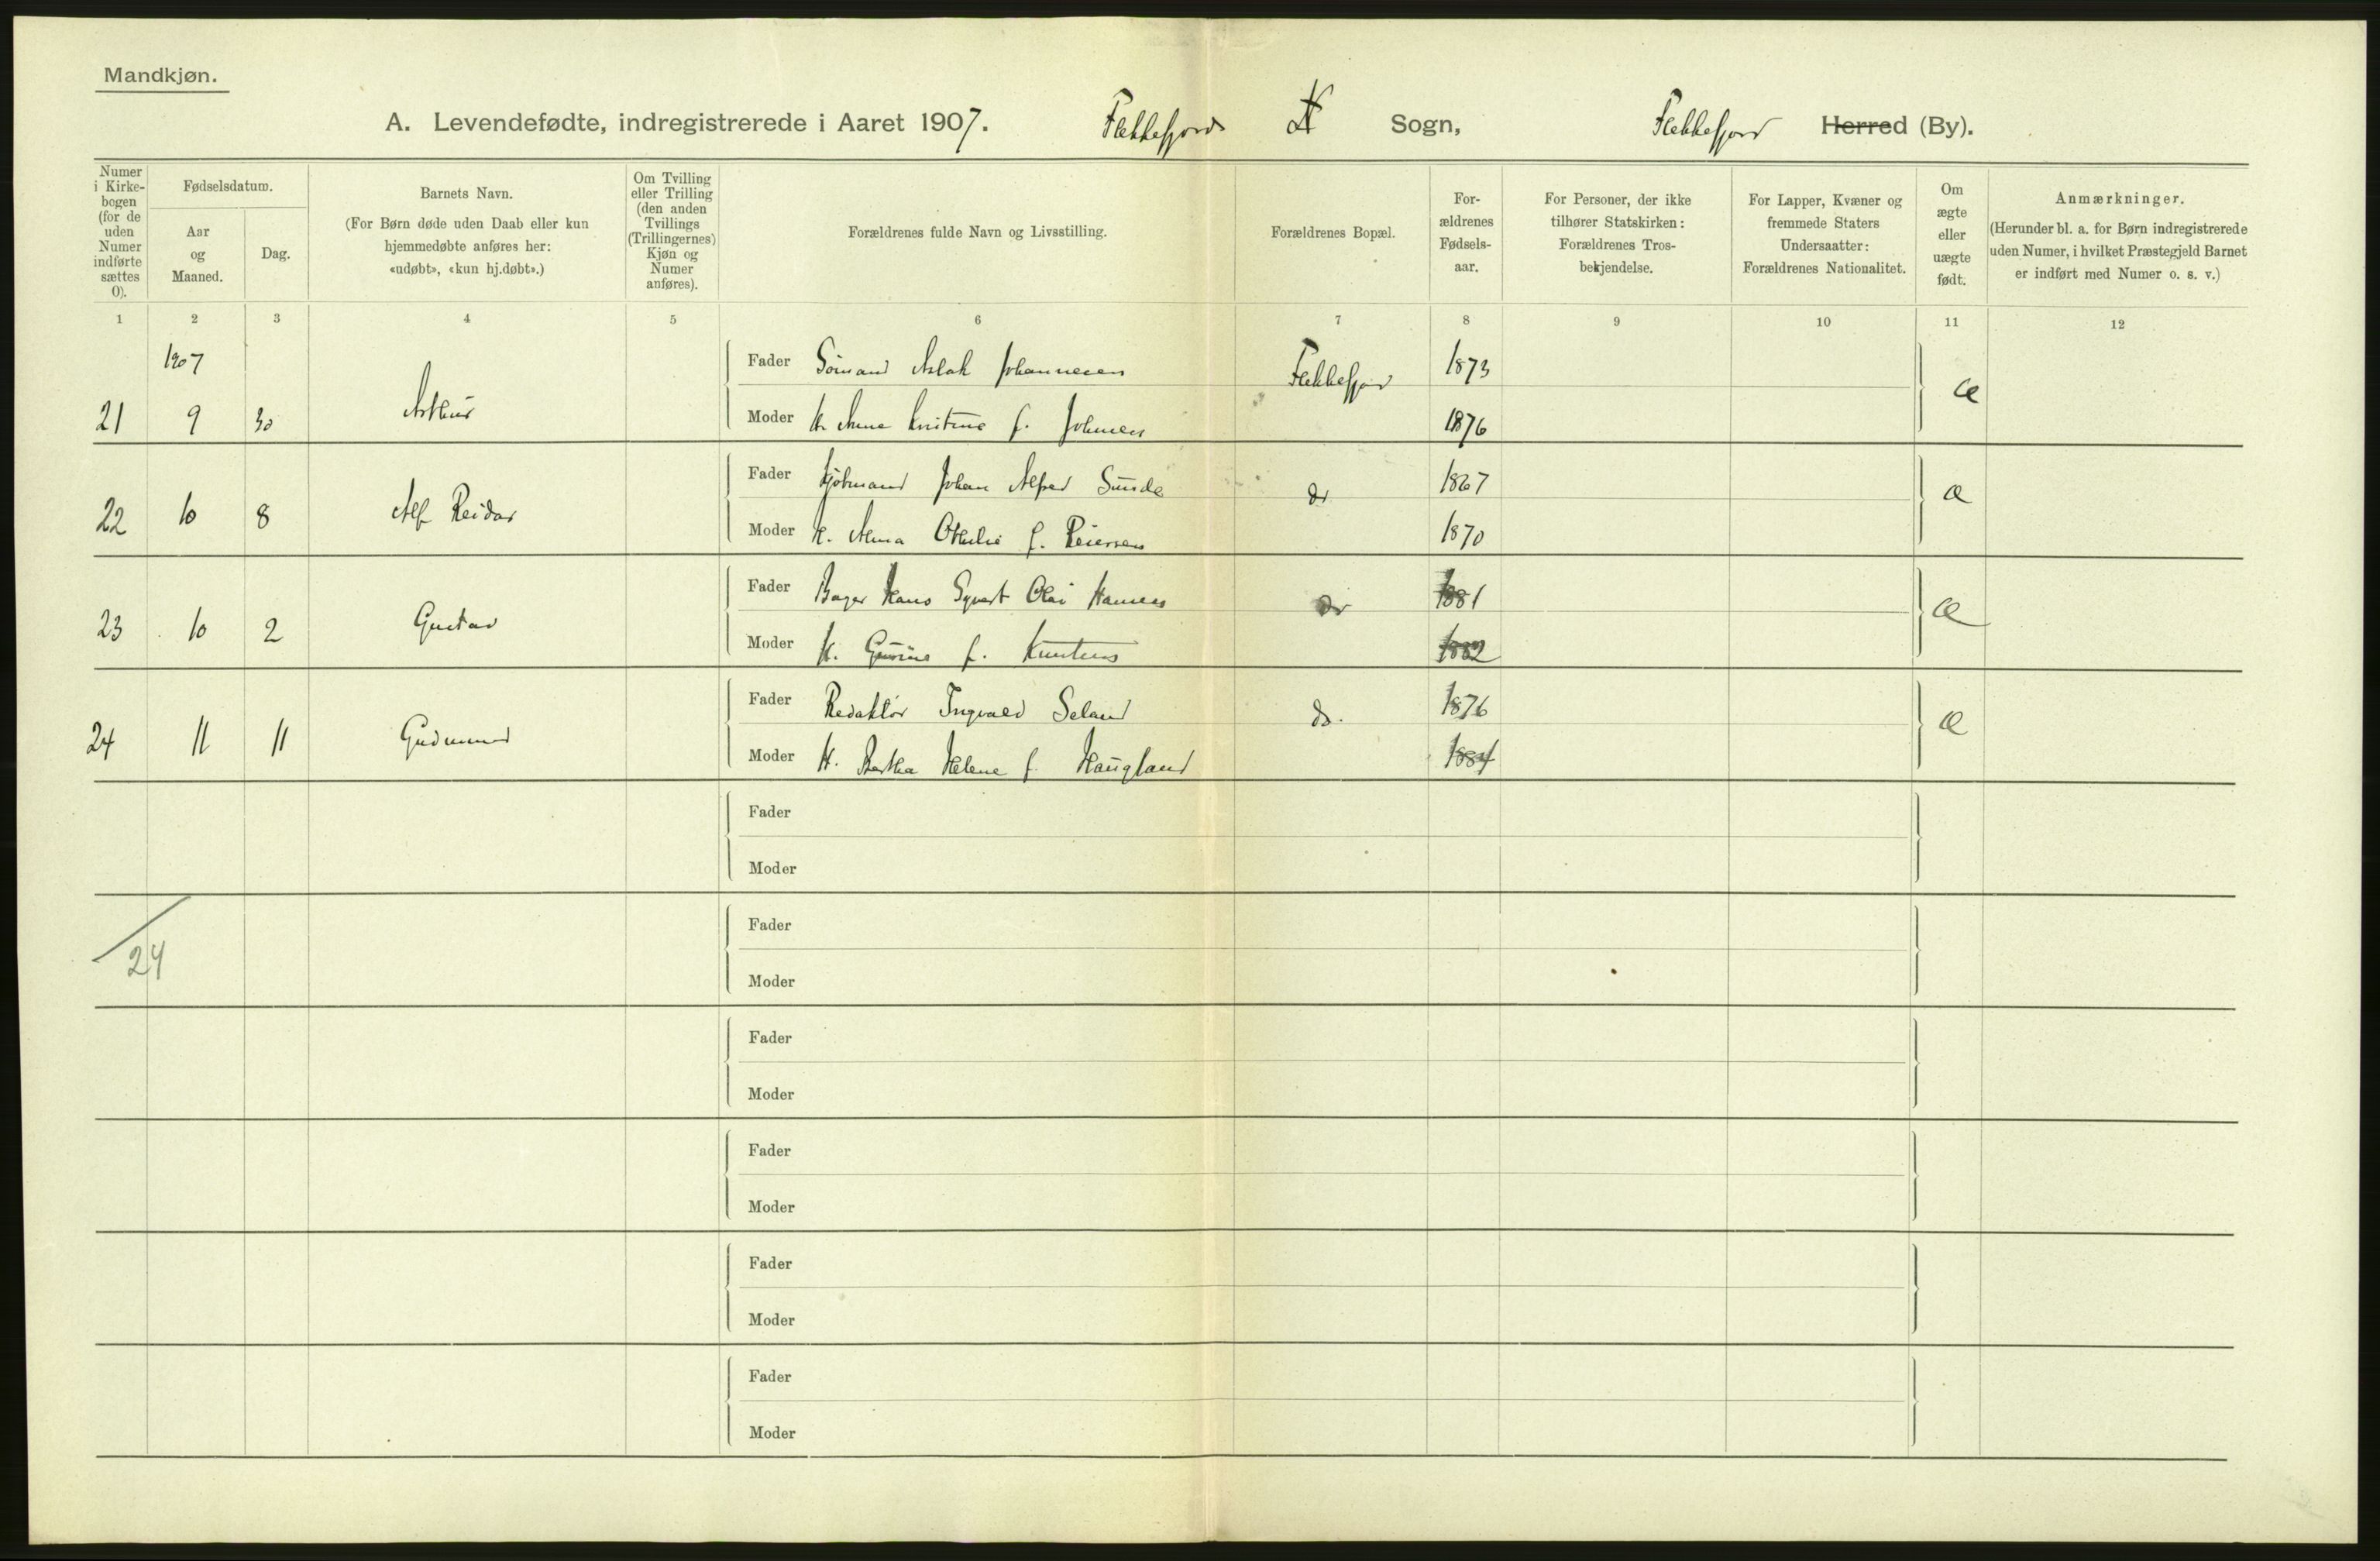 Mandkjøn.
A. Levendefødte, indregistrerede i Aaret 1907. Flekkefjords Sogn, Flekkefjord Herred (By).
Numer i Kirkebogen (for de uden Numer indførte sættes 0).
Fødselsdatum.
Aar og Maaned.
Dag.
Barnets Navn.
(For Børn døde uden Daab eller kun hjemmedøbte anføres her: «udøbt», «kun hj.døbt».)
Om Tvilling eller Trilling (den anden Tvillings (Trillingernes) Kjøn og Numer anføres).
Forældrenes fulde Navn og Livsstilling.
Forældrenes Bopæl.
Forældrenes Fødselsaar.
For Personer, der ikke tilhører Statskirken: Forældrenes Trosbekjendelse.
For Lapper, Kvæner og fremmede Staters Undersaatter: Forældrenes Nationalitet.
Om ægte eller uægte født.
Anmærkninger.
(Herunder bl. a. for Børn indregistrerede uden Numer, i hvilket Præstegjeld Barnet er indført med Numer o. s. v.)
1 2 3 4 5 6 7 8 9 10 11 12
1907
Fader Sømand Aslak Johannesen Flekkefjord 1873
21 9 30 Arthur Moder H. Anna Kristine f. Johnsen 1876 Æ
Fader Kjøbmand Johan Alfred Sunde do 1867
22 10 8 Alf Reidar Moder H. Alma Othilie f. Reiersen 1870 Æ
Fader Bager Hans Syvert Olai Hansen do 1881
23 10 2 Gustav Moder H. Gurine f. Knutsen 1882 Æ
Fader Redaktör Ingvald Seland do. 1876
24 11 11 Gudmund Moder H. Bertha Helene f. Haugland 1884 Æ
Fader
Moder
Fader
24
Moder
Fader
Moder
Fader
Moder
Fader
Moder
Fader
Moder